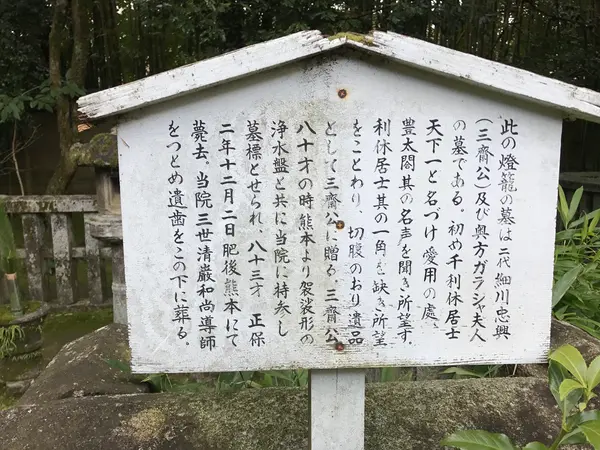 此の燈籠の墓は二代細川忠興
(三齋公)及び奥方ガラシャ夫人
の墓である。初め千利休居士
天下一と名づけ愛用の處、
豊太閤其の名声を聞き所望す.
利休居士其の一角を缺き所望
をことわり、切腹のおり遺品
として三齋公に贈る 三齋公
八十才の時熊本より袈裟形の
浄水盤と共に当院に持参し
墓標とせられ、八十三才 正保
二年十二月二日肥後熊本にて
薨去、当院三世清巌和尚導師
をつとめ遺歯をこの下に葬る.